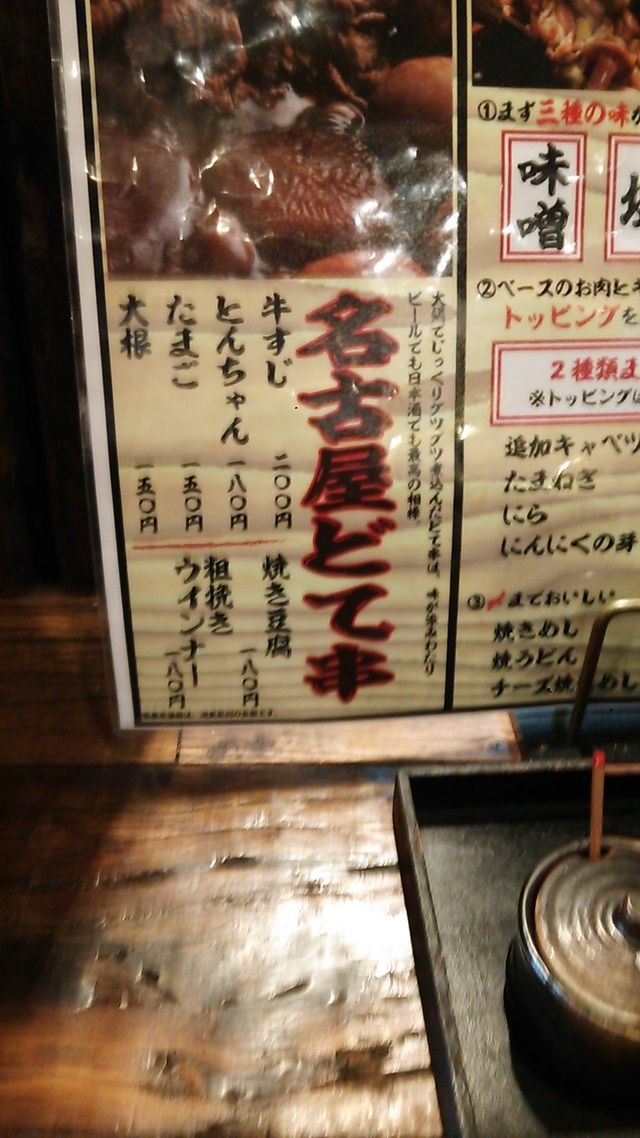 名古屋どて串
大鍋でじっくりグツグツ煮込んだどて串は、味が染みわたり
ビールでも日本酒でも最高の相棒。
牛すじ 二〇〇円
とんちゃん 一八〇円
たまご 一五〇円
大根 一五〇円
焼き豆腐 一八〇円
粗挽き
ウインナー 一八〇円
①まず三種の味か
味噌
塩
②ベースのお肉とキ
トッピングを
2種類ま
※トッピングは
追加キャベツ
たまねぎ
にら
にんにくの芽
③〆までおいしい
焼きめし
焼うどん
チーズ焼きめし